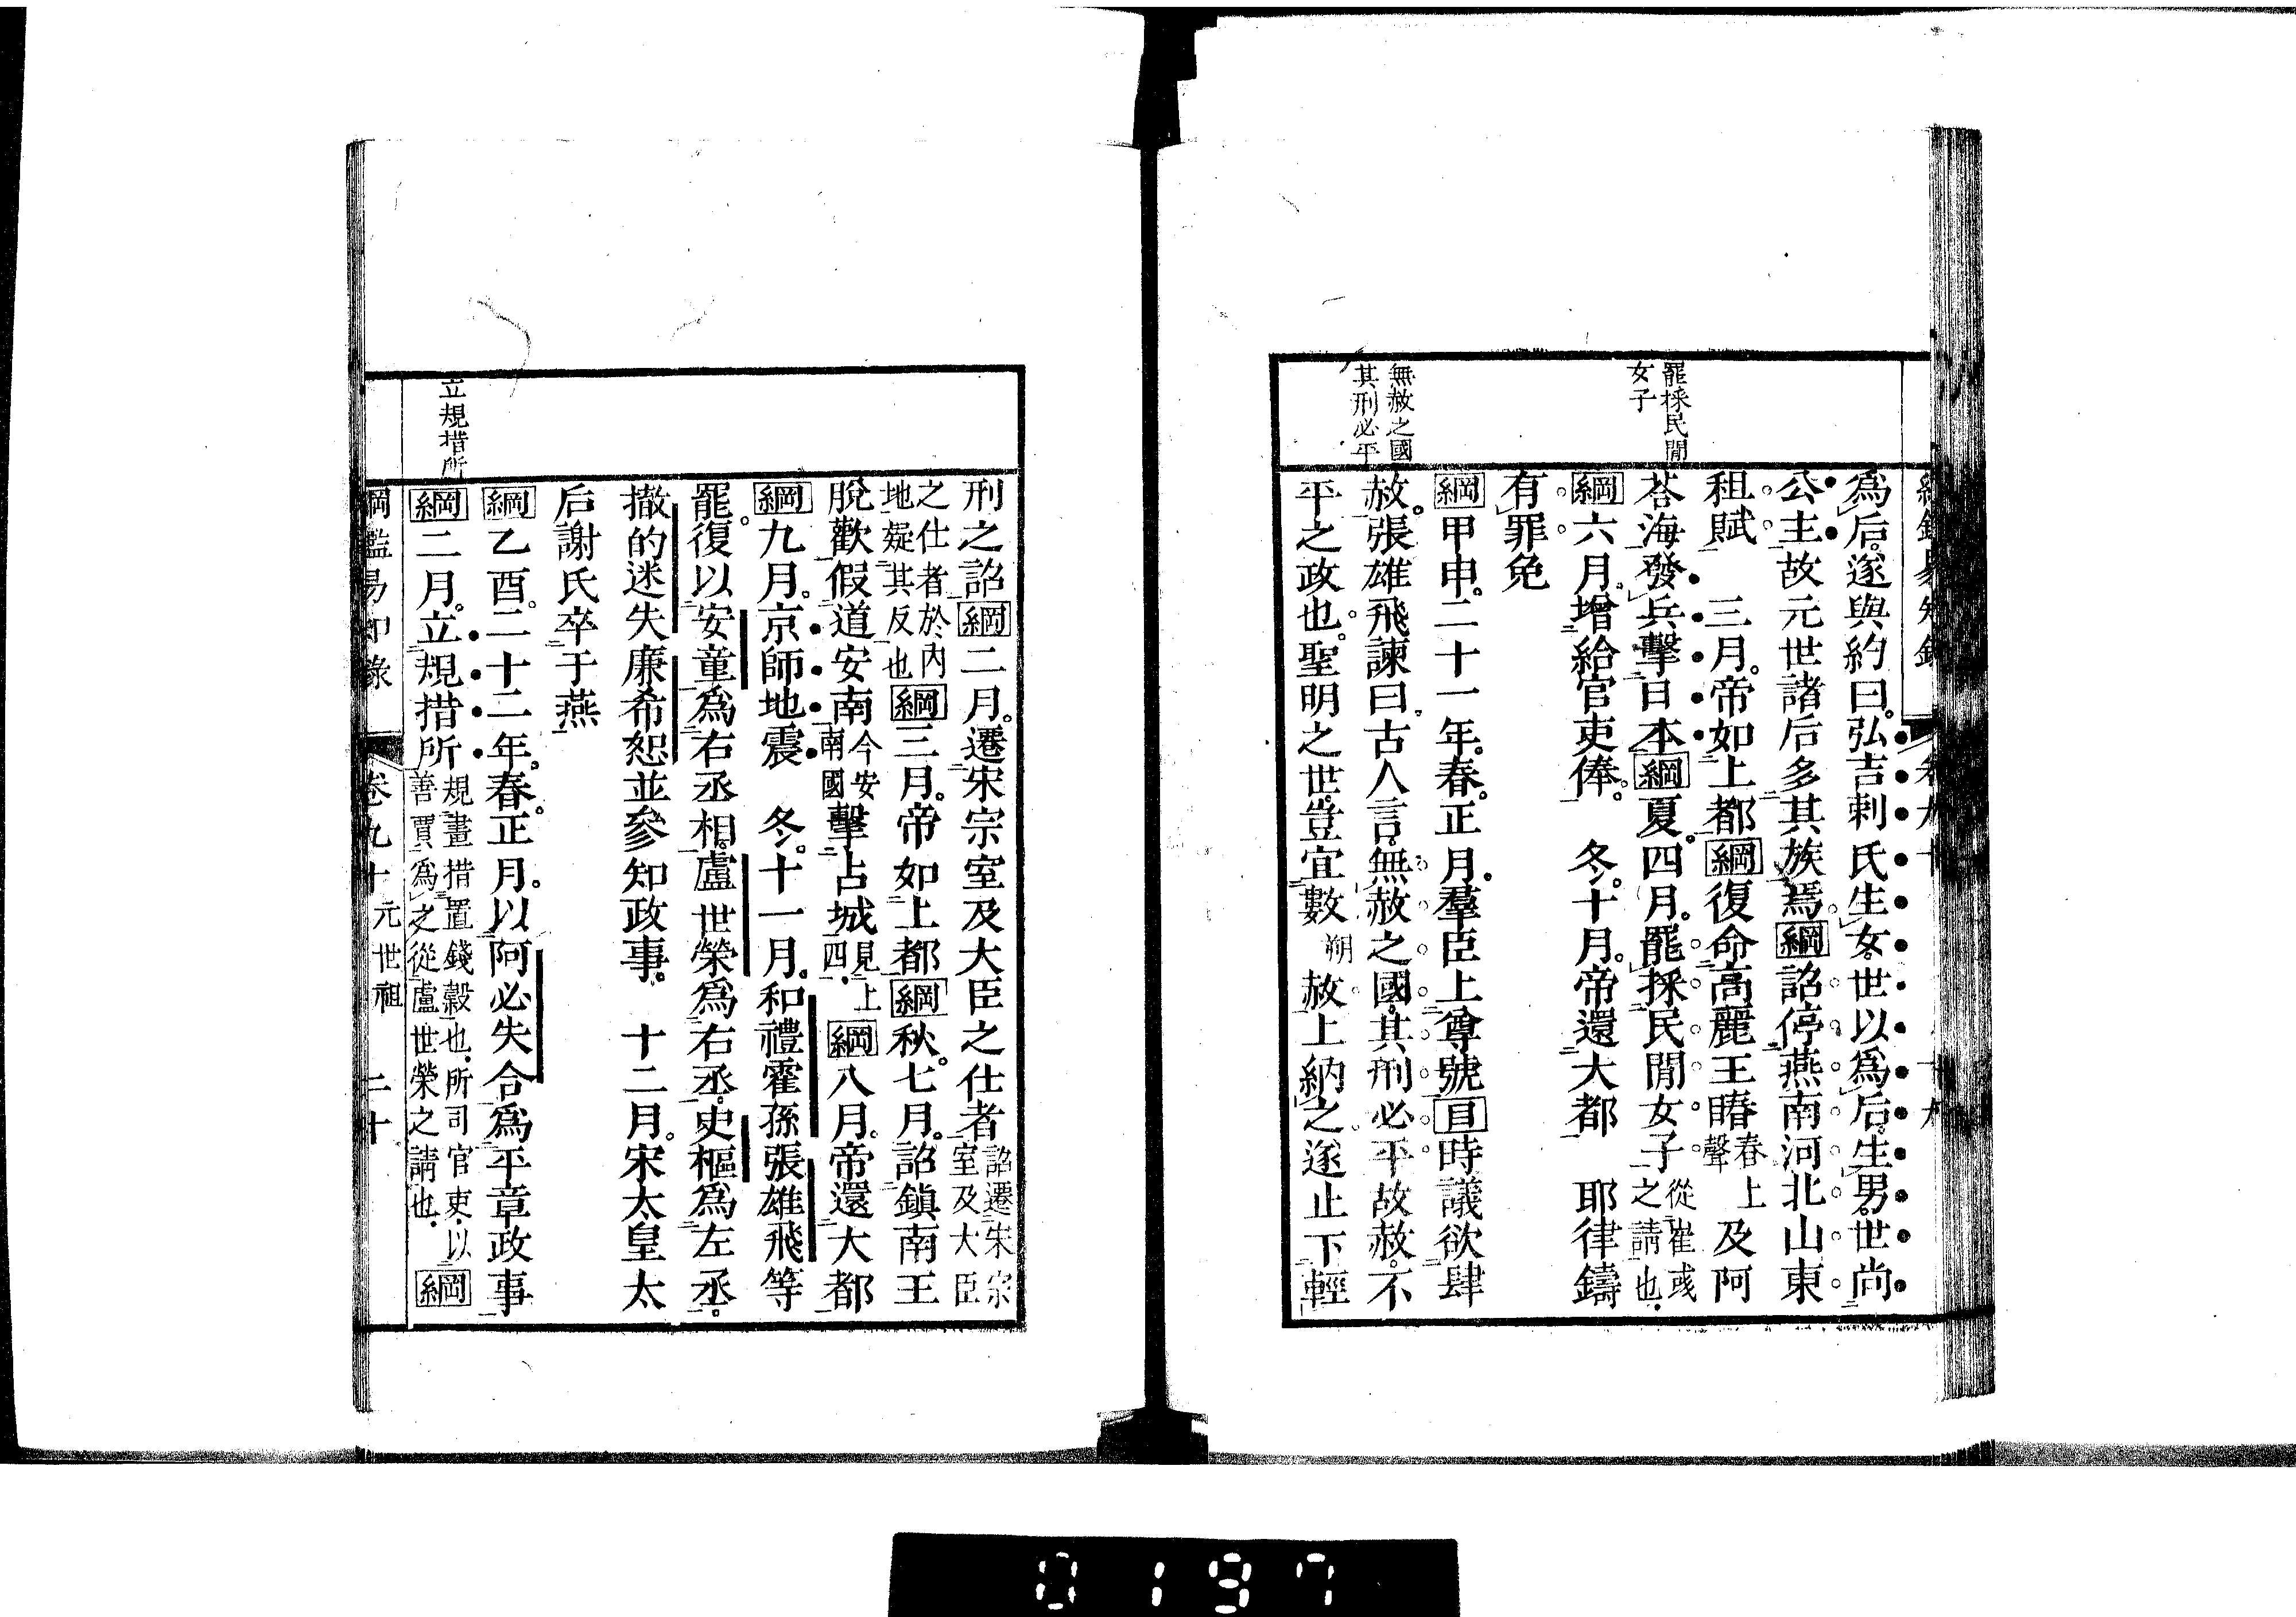 罷採民閒
女子
無赦之國
其刑必平
爲后遂與約曰弘吉剌氏生女世以爲后生男世尚
公主故元世諸后多其族焉綱詔停燕南河北山東
租賦　三月帝如上都綱復命高麗王睶春上聲及阿
荅海發兵擊日本綱夏四月罷採民閒女子從崔彧之請也
綱六月增給官吏俸　冬十月帝還大都　耶律鑄
有罪免
綱甲申二十一年春正月羣臣上尊號目時議欲肆
赦張雄飛諫曰古人言無赦之國其刑必平故赦不
平之政也聖明之世豈宜數朔赦上納之遂止下輕
刑之詔綱二月遷宋宗室及大臣之仕者詔遷宋宗室及大臣
之仕者於內地疑其反也綱三月帝如上都綱秋七月詔鎭南王
脫歡假道安南今安南國擊占城見上四綱八月帝還大都
綱九月京師地震　冬十一月和禮霍孫張雄飛等
罷復以安童爲右丞相盧世榮爲右丞史樞爲左丞
撤的迷失廉希恕並參知政事　十二月宋太皇太
后謝氏卒于燕
綱乙酉二十二年春正月以阿必失合爲平章政事
綱二月立規措所規畫措置錢穀也所司官吏以善賈爲之從盧世榮之請也綱
立規措所
綱鑑易知錄　卷九十　元世祖　二十
0197